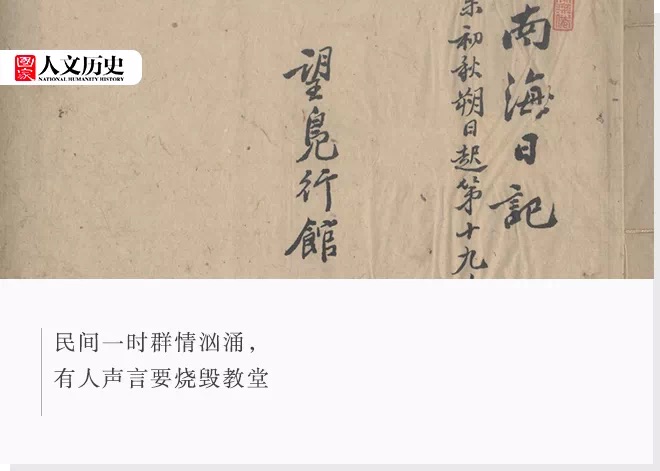 國家
人文历史
NATIONAL HUMANITY HISTORY
南海日記
初秋朔日起第十九
望凫行館
民间一时群情汹涌，
有人声言要烧毁教堂